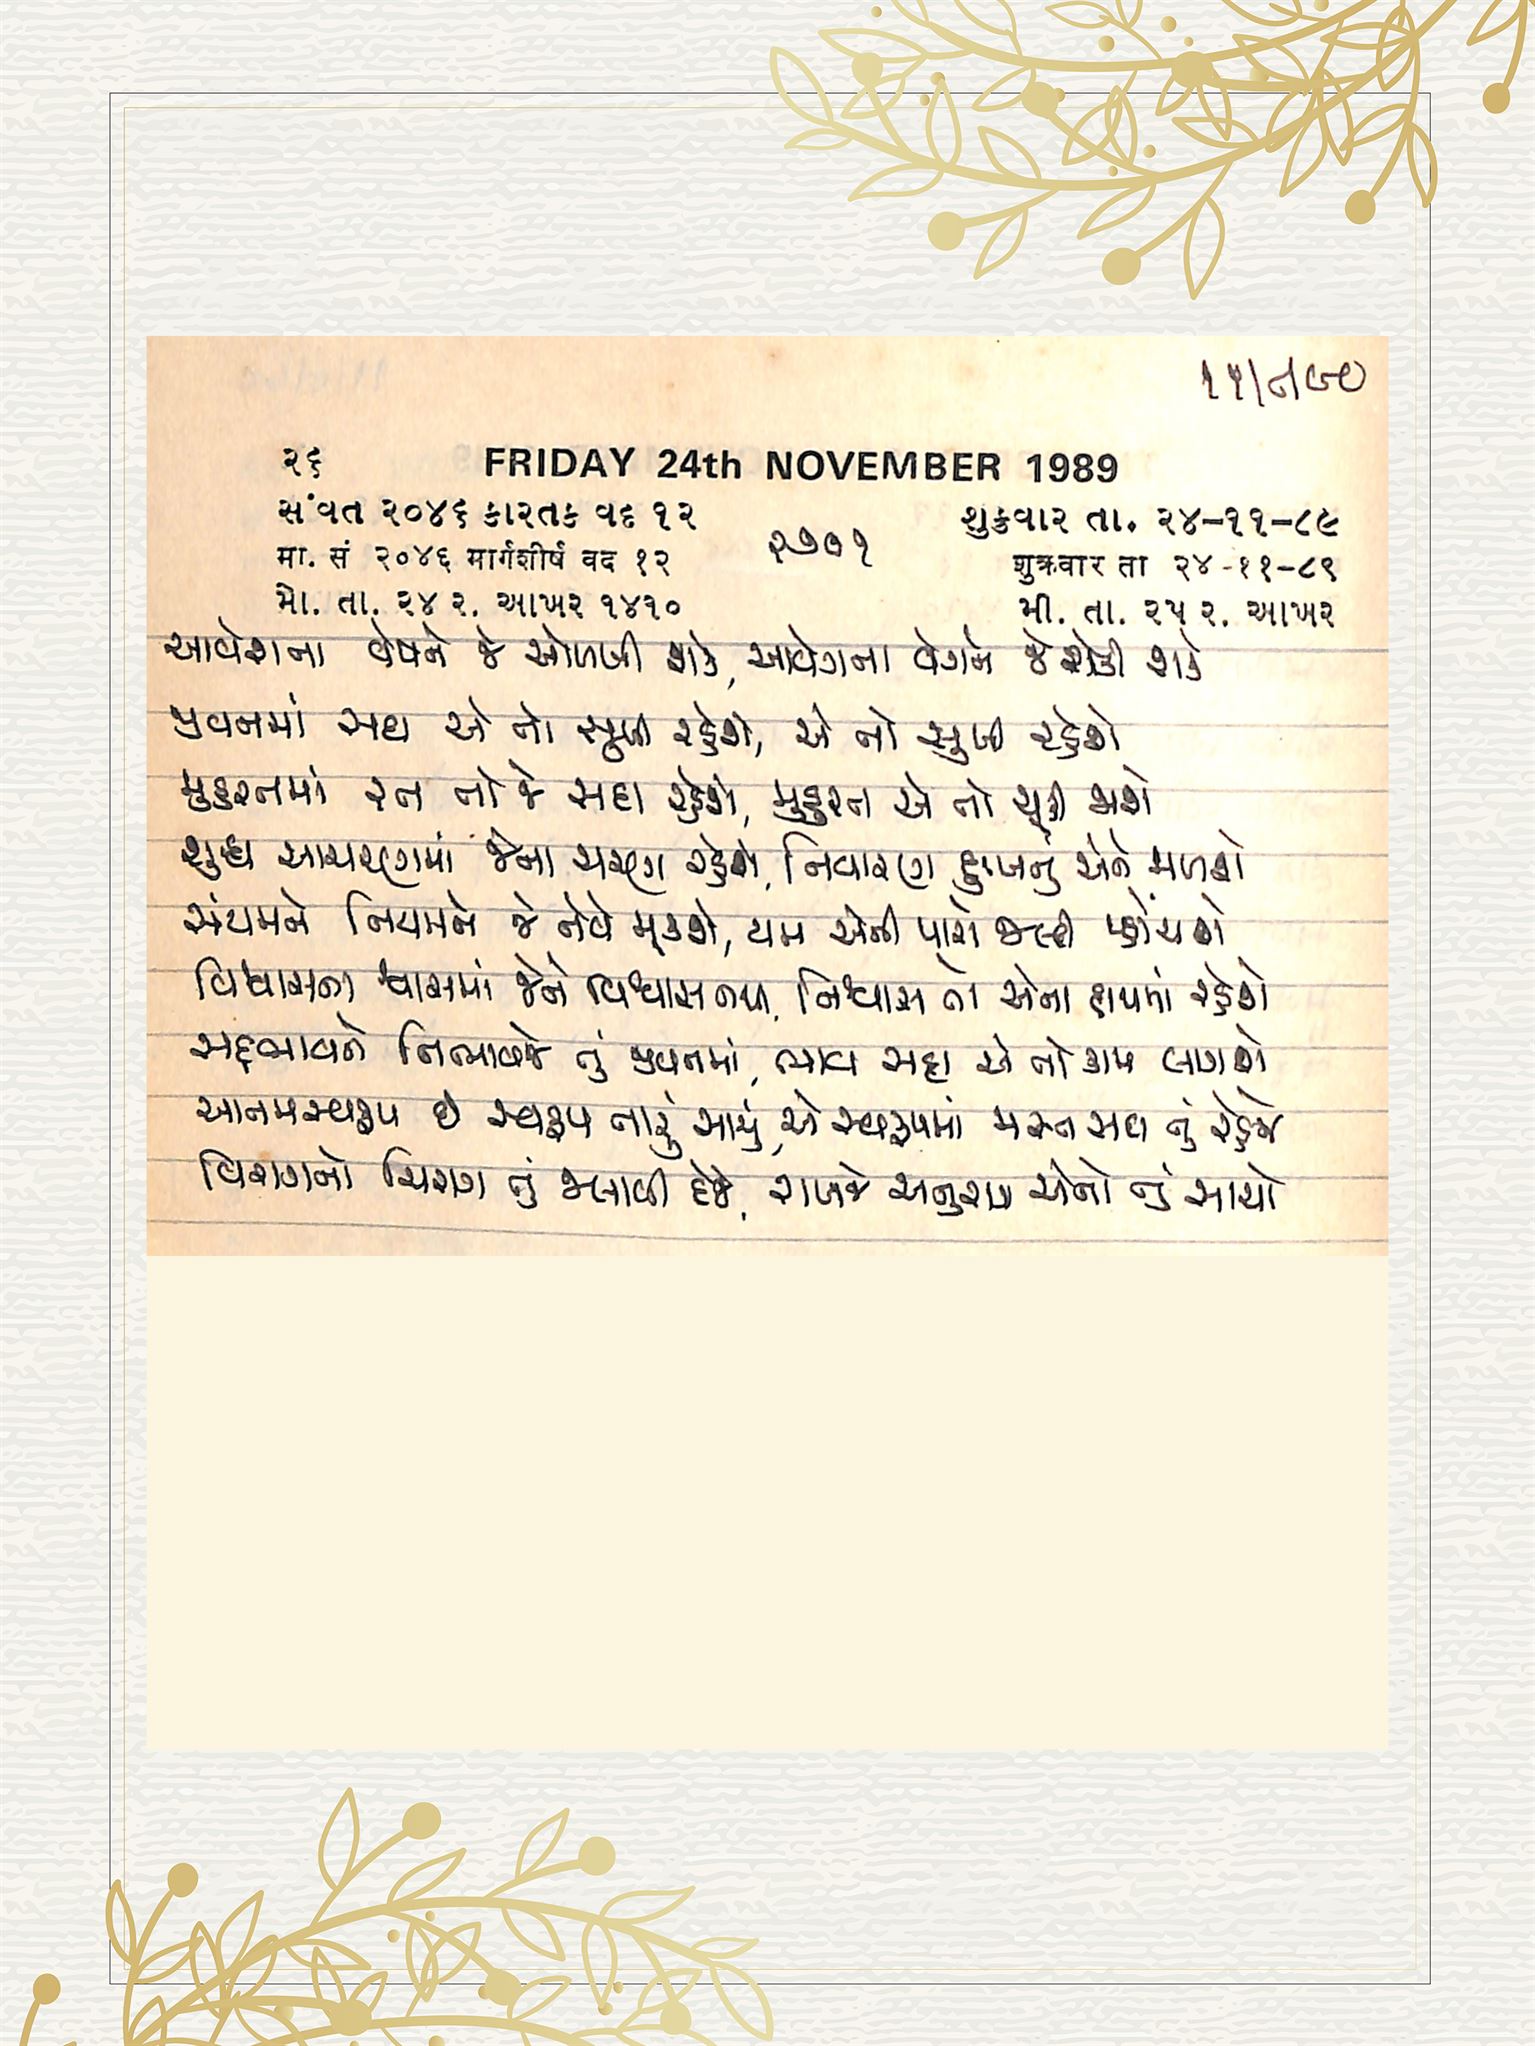 ૧૫/૮/૯૦
૨૬ FRIDAY 24th NOVEMBER 1989
સંવત ૨૦૪૬ કારતક વદ ૧૨ શુક્રવાર તા. ૨૪-૧૧-૮૯
मा. सं २०४६ मार्गशीर्ष वद १२ ૨૭૦૧ शुक्रवार ता २४-११-८९
મો. તા. ૨૪ ર. આખર ૧૪૧૦ મી. તા. ૨૫ ર. આખર
આવેશના વેષને જે ઓળખી શકે, આવેગના વેગને જે રોકી શકે
જીવનમાં સદા એ તો સુખી રહેશે, એ તો સુખી રહેશે
પ્રભુરતનમાં રત તો જે સદા રહેશે, એ તો શકે
શુદ્ધ આચરણમાં જેના ચરણ રહેશે, નિવારણ દુઃખનું એને મળશે
સંયમને નિયમને જે નેવે મૂકશે, યમ એની પાસે જલ્દી પ્હોંચશે
વિશ્વાસના શ્વાસમાં જેને વિશ્વાસ નથી, નિશ્વાસ તો એના હાથમાં રહેશે
સદ્દભાવને નિભાવજે તું જીવનમાં, ભાવ સદા એ તો કામ લાગશે
આત્મસ્વરૂપ છે સ્વરૂપ તારું સાચું, એ સ્વરૂપમાં મસ્ત સદા તું રહેજે
વિરાગનો ચિરાગ તું જલાવી દેજે, રાખજે અનુરાગ એનો તું સાચો